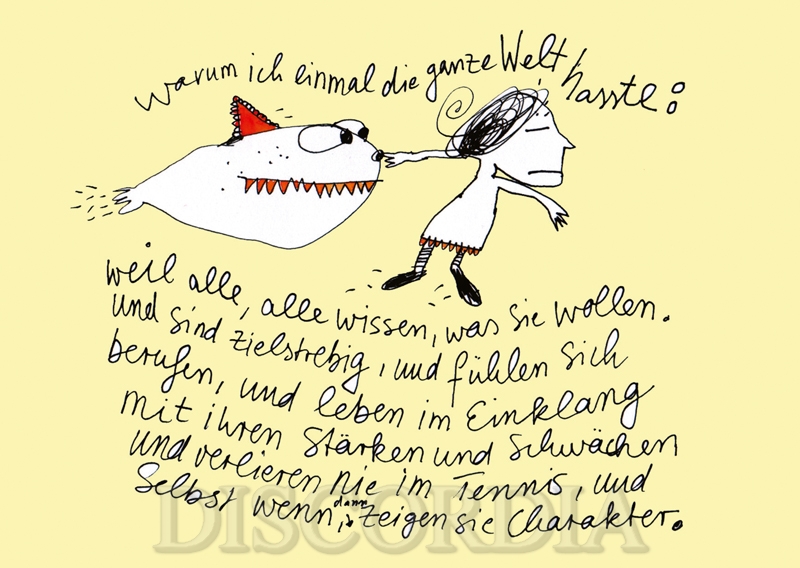 warum ich einmal die ganze Welt hasste:
weil alle, alle wissen, was sie wollen.
und sind zielstrebig, und fühlen sich
berufen, und leben im Einklang
mit ihren Stärken und Schwächen
und verlieren nie im Tennis, und
selbst wenn, dann zeigen sie Charakter.
DISCORDIA